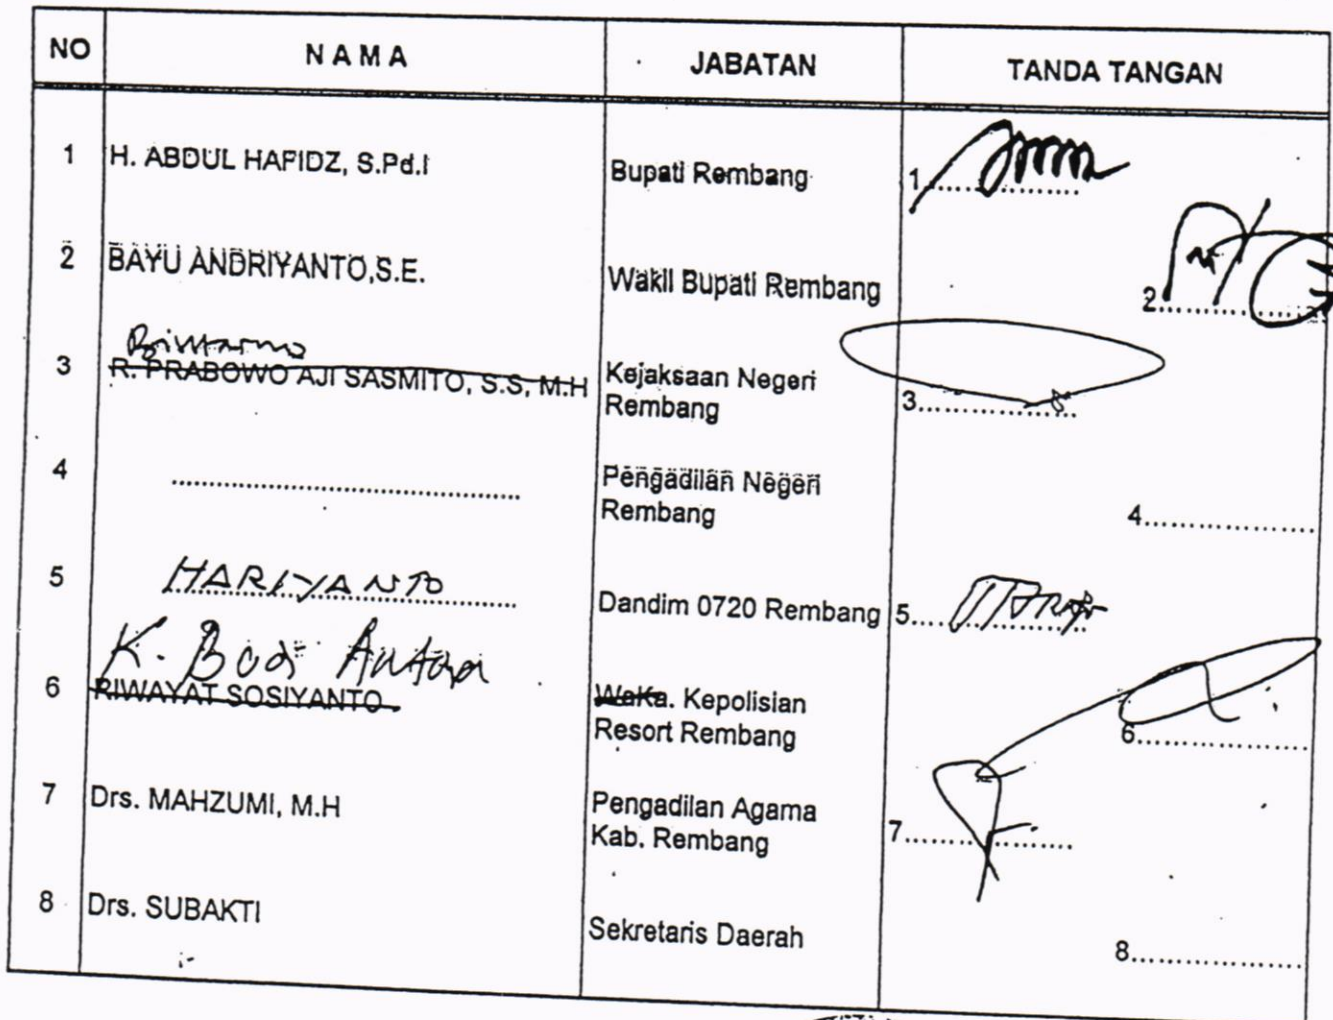 NO NAMA JABATAN TANDA TANGAN
1 H. ABDUL HAFIDZ, S.Pd.I Bupati Rembang 1..................
2 BAYU ANDRIYANTO,S.E. Wakil Bupati Rembang 2..................
3 R. PRABOWO AJI SASMITO, S.S, M.H Kejaksaan Negeri 3..................
Rembang
4 .................................... Pengadilan Negeri 4..................
Rembang
5 HARIYANTO Dandim 0720 Rembang 5..................
K. Budi
6 RIWAYAT SOSIYANTO WaKa. Kepolisian 6..................
Resort Rembang
7 Drs. MAHZUMI, M.H Pengadilan Agama 7..................
Kab. Rembang
8 Drs. SUBAKTI Sekretaris Daerah 8..................